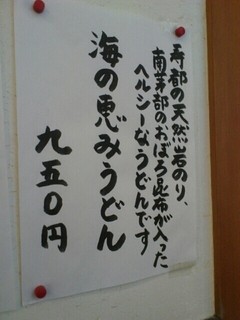 寿都の天然岩のり、
南茅部のおぼろ昆布が入った
ヘルシーなうどんです
海の恵みうどん
九五〇円